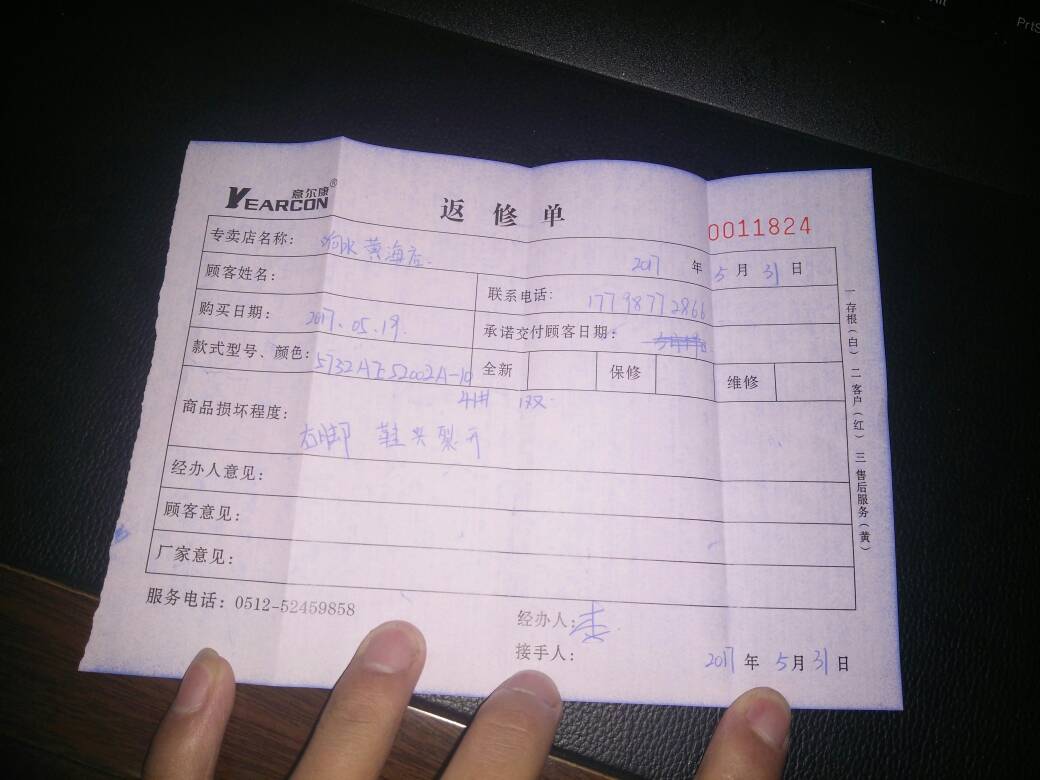 意尔康®
YEARCON
返修单
0011824
专卖店名称: 响水黄海店
2017年5月31日
顾客姓名:
联系电话: 17798772866
购买日期: 2017.05.19.
承诺交付顾客日期:
款式型号、颜色: 5732A7552002A-10
全新 保修 维修
41# 1双
商品损坏程度:
右脚 鞋头裂开
经办人意见:
顾客意见:
厂家意见:
服务电话: 0512-52459858
经办人: 李
接手人:
2017年5月31日
一存根(白) 二客户(红) 三售后服务(黄)
PrtS